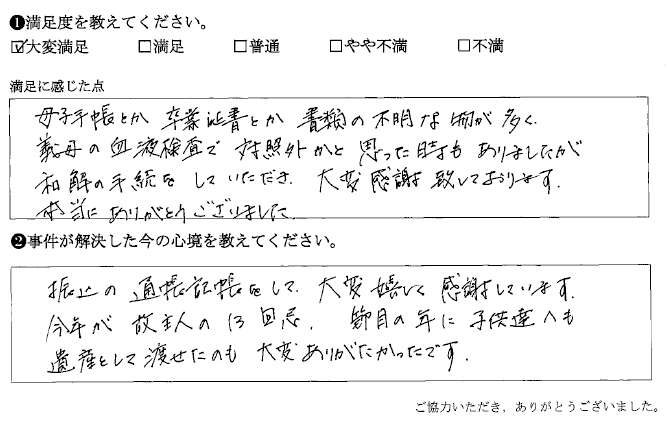 ❶満足度を教えてください。
☑大変満足 □満足 □普通 □やや不満 □不満
満足に感じた点
母子手帳とか 卒業証書とか 書類の不明な物が多く、
義母の血液検査で 対照外かと思った時もありましたが
和解の手続をしていただき、大変感謝致しております。
本当にありがとうございました。
❷事件が解決した今の心境を教えてください。
振込の通帳記帳をして、大変嬉しく感謝しています。
今年が故主人の13回忌、節目の年に子供達へも
遺産として渡せたのも大変ありがたかったです。
ご協力いただき、ありがとうございました。